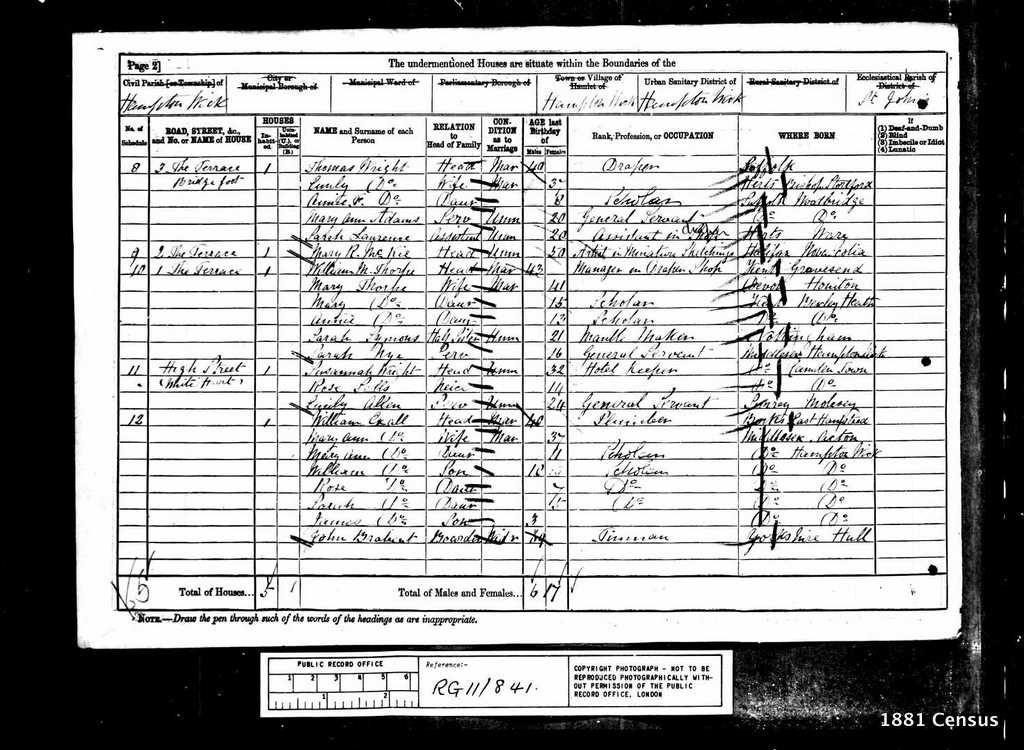 Page 2]
The undermentioned Houses are situate within the Boundaries of the
Civil Parish [or Township] of
City or Municipal Borough of
Municipal Ward of
Parliamentary Borough of
Town or Village of Hamlet of
Urban Sanitary District of
Rural Sanitary District of
Ecclesiastical Parish of District of
Hampton Wick Hampton Wick Hampton Wick St John's
No. of Schedule
ROAD, STREET, &c., and No. or NAME of HOUSE
HOUSES
Inhabited
Uninhabited (U.), or Building (B.)
NAME and Surname of each Person
RELATION to Head of Family
CONDITION as to Marriage
AGE last Birthday of
Males Females
Rank, Profession, or OCCUPATION
WHERE BORN
If
(1) Deaf-and-Dumb
(2) Blind
(3) Imbecile or Idiot
(4) Lunatic
8 3 The Terrace 1 Thomas Wright Head Mar 40 Draper Suffolk
Bridge foot Emily Do Wife Mar 32 Herts Bishop Stortford
Annie Do Daur 8 Scholar Suffolk Woodbridge
Mary Ann Adams Serv Unm 20 General Servant Do Do
Sarah Laurence Assistant Unm 20 Assistant in Shop Herts Ware
9 2 The Terrace 1 Mary R. Head Unm 50 Artist in Miniature Halifax Nova Scotia
10 1 The Terrace 1 William M. Thorpe Head Mar 43 Manager in Drapers Shop Kent Gravesend
Mary Thorpe Wife Mar 41 Devon Honiton
Mary Do Daur 15 Scholar Kent Bexley Heath
Annie Do Daur 13 Scholar Do Do
Sarah Symons Half Sister Unm 21 Mantle Maker
Sarah Nye Serv 16 General Servant Middlesex Hampton Wick
11 High Street 1 Susannah Wright Head Unm 32 Hotel Keeper Do Camden Town
(White Hart) Rose Neice 14 Do Do
Emily Allen Serv Unm 24 General Servant Surrey Molesey
12 1 William Head Mar 40 Plumber Berks East Hampstead
Mary Ann Do Wife Mar 37 Middlesex Acton
Mary Ann Do Daur 11 Scholar Do Hampton Wick
William Do Son 12 Scholar Do Do
Rose Do Daur 7 Do Do Do
Sarah Do Daur Do Do Do
James Do Son 3 Do Do
John Boarder Widr Tinman Yorkshire Hull
Total of Houses... 5 1
Total of Males and Females... 6 17
NOTE.—Draw the pen through such of the words of the headings as are inappropriate.
PUBLIC RECORD OFFICE
1 2 3 4 5 6
1 2
Reference:-
RG 11/841.
COPYRIGHT PHOTOGRAPH - NOT TO BE
REPRODUCED PHOTOGRAPHICALLY WITH-
OUT PERMISSION OF THE PUBLIC
RECORD OFFICE, LONDON
1881 Census